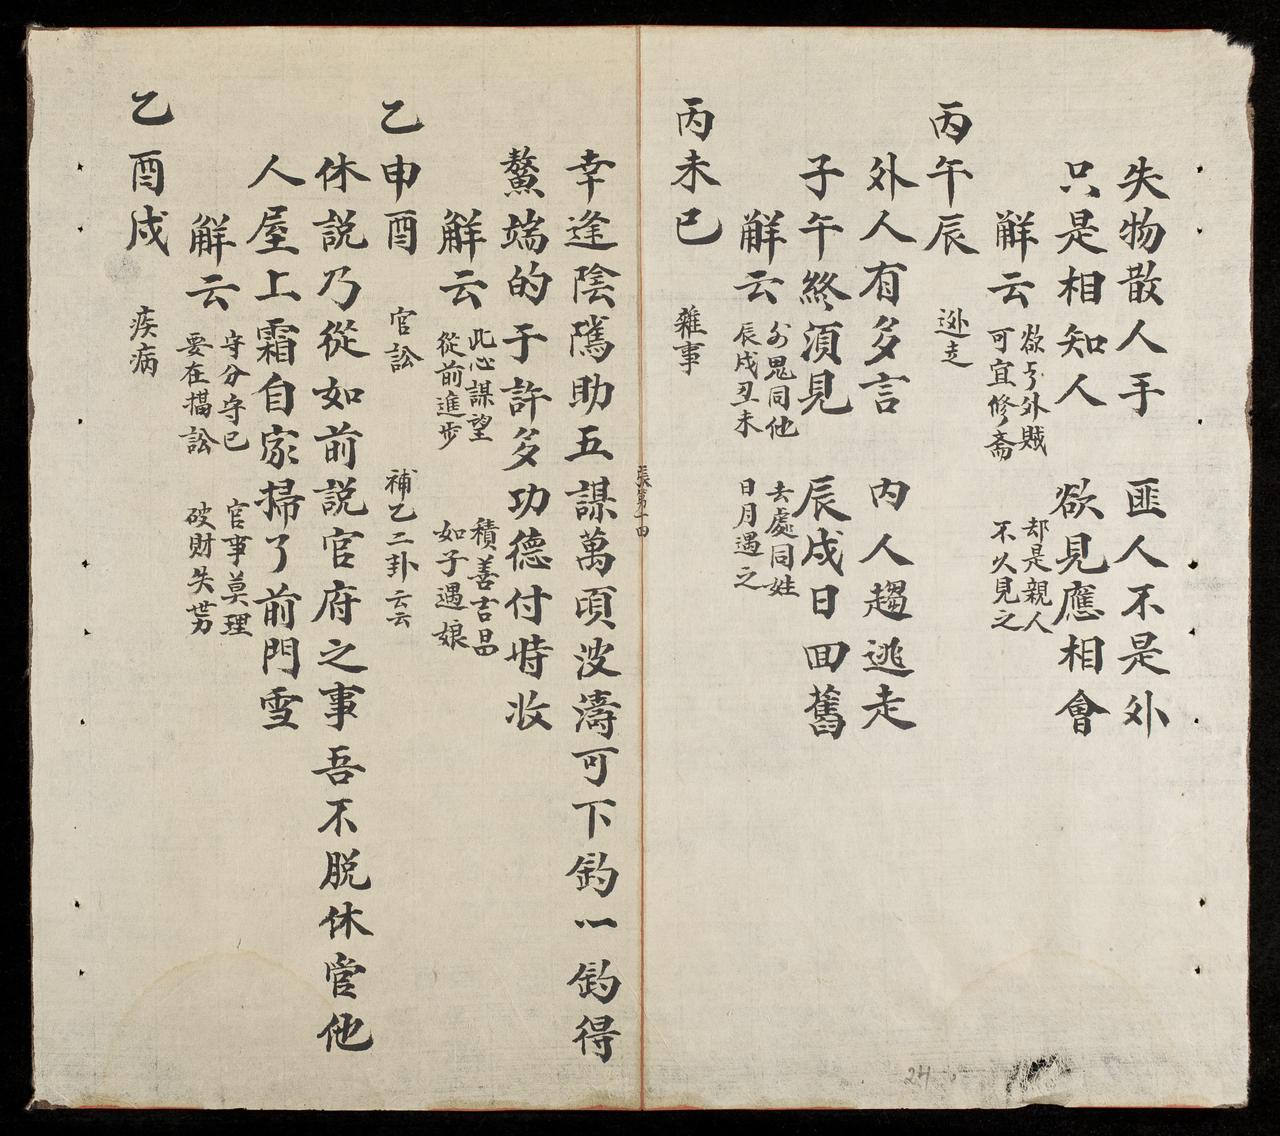 失物散人手 匪人不是外
只是相知人 欲見應相會
解云 欲與外賊 却是親人
可宜修斋 不久見之
丙午辰 逊走
外人有多言 内人趨逃走
子午終須見 辰戍日回舊
解云 外鬼同他 去處同姓
辰戍丑未 日月遇之
丙未巳 雜事
幸逢陰隲助五謀萬頃波濤可下釣一釣得
鰲端的于許多功德付時收
解云 此心謀望 積善吉昌
從前進步 如子遇娘
乙申酉 官訟 補乙二卦云云
休説乃從如前説官府之事吾不脱休管他
人屋上霜自家掃了前門雪
解云 守分守己 官事莫理
要在搵訟 破財失势
乙酉戍 疾病
張第十四
24